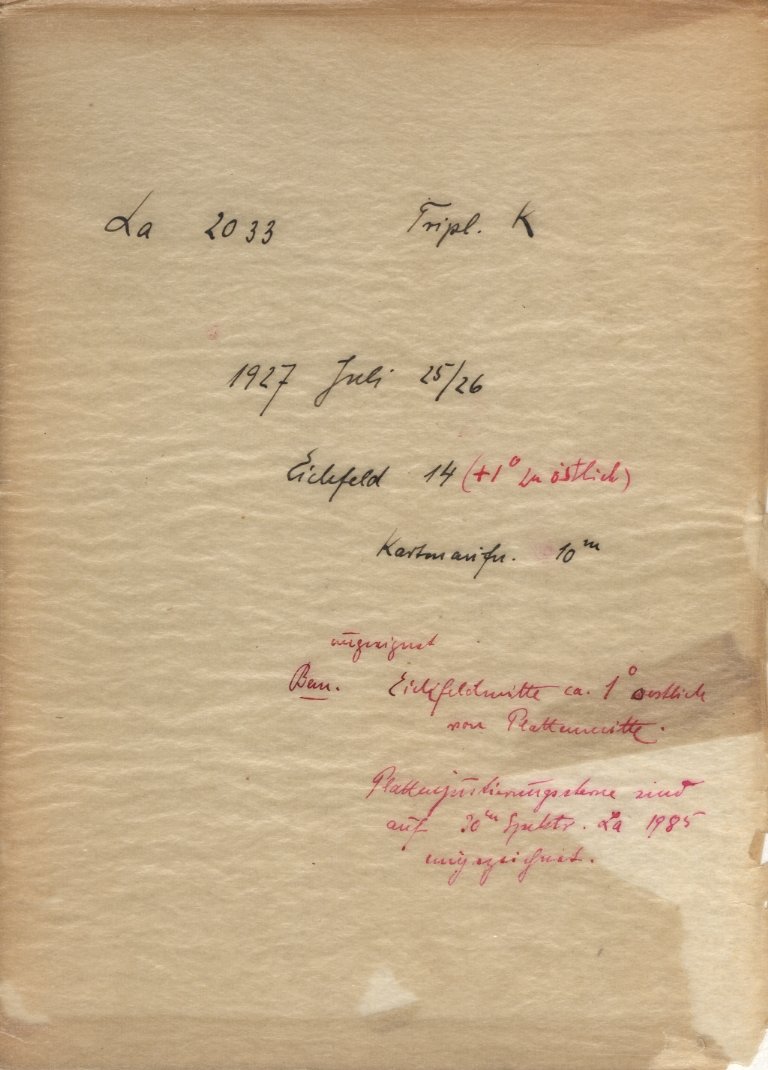 La 2033 Tripl. K
1927 Juli 25/26
Eichfeld 14 (+1° zu östlich)
Kartenaufn. 10ᵐ
ungeeignet
Bem. Eichfeldmitte ca. 1° westlich
von Plattenmitte.
Plattenjustierungssterne sind
auf 30ᵐ Spektr. La 1985
eingezeichnet.